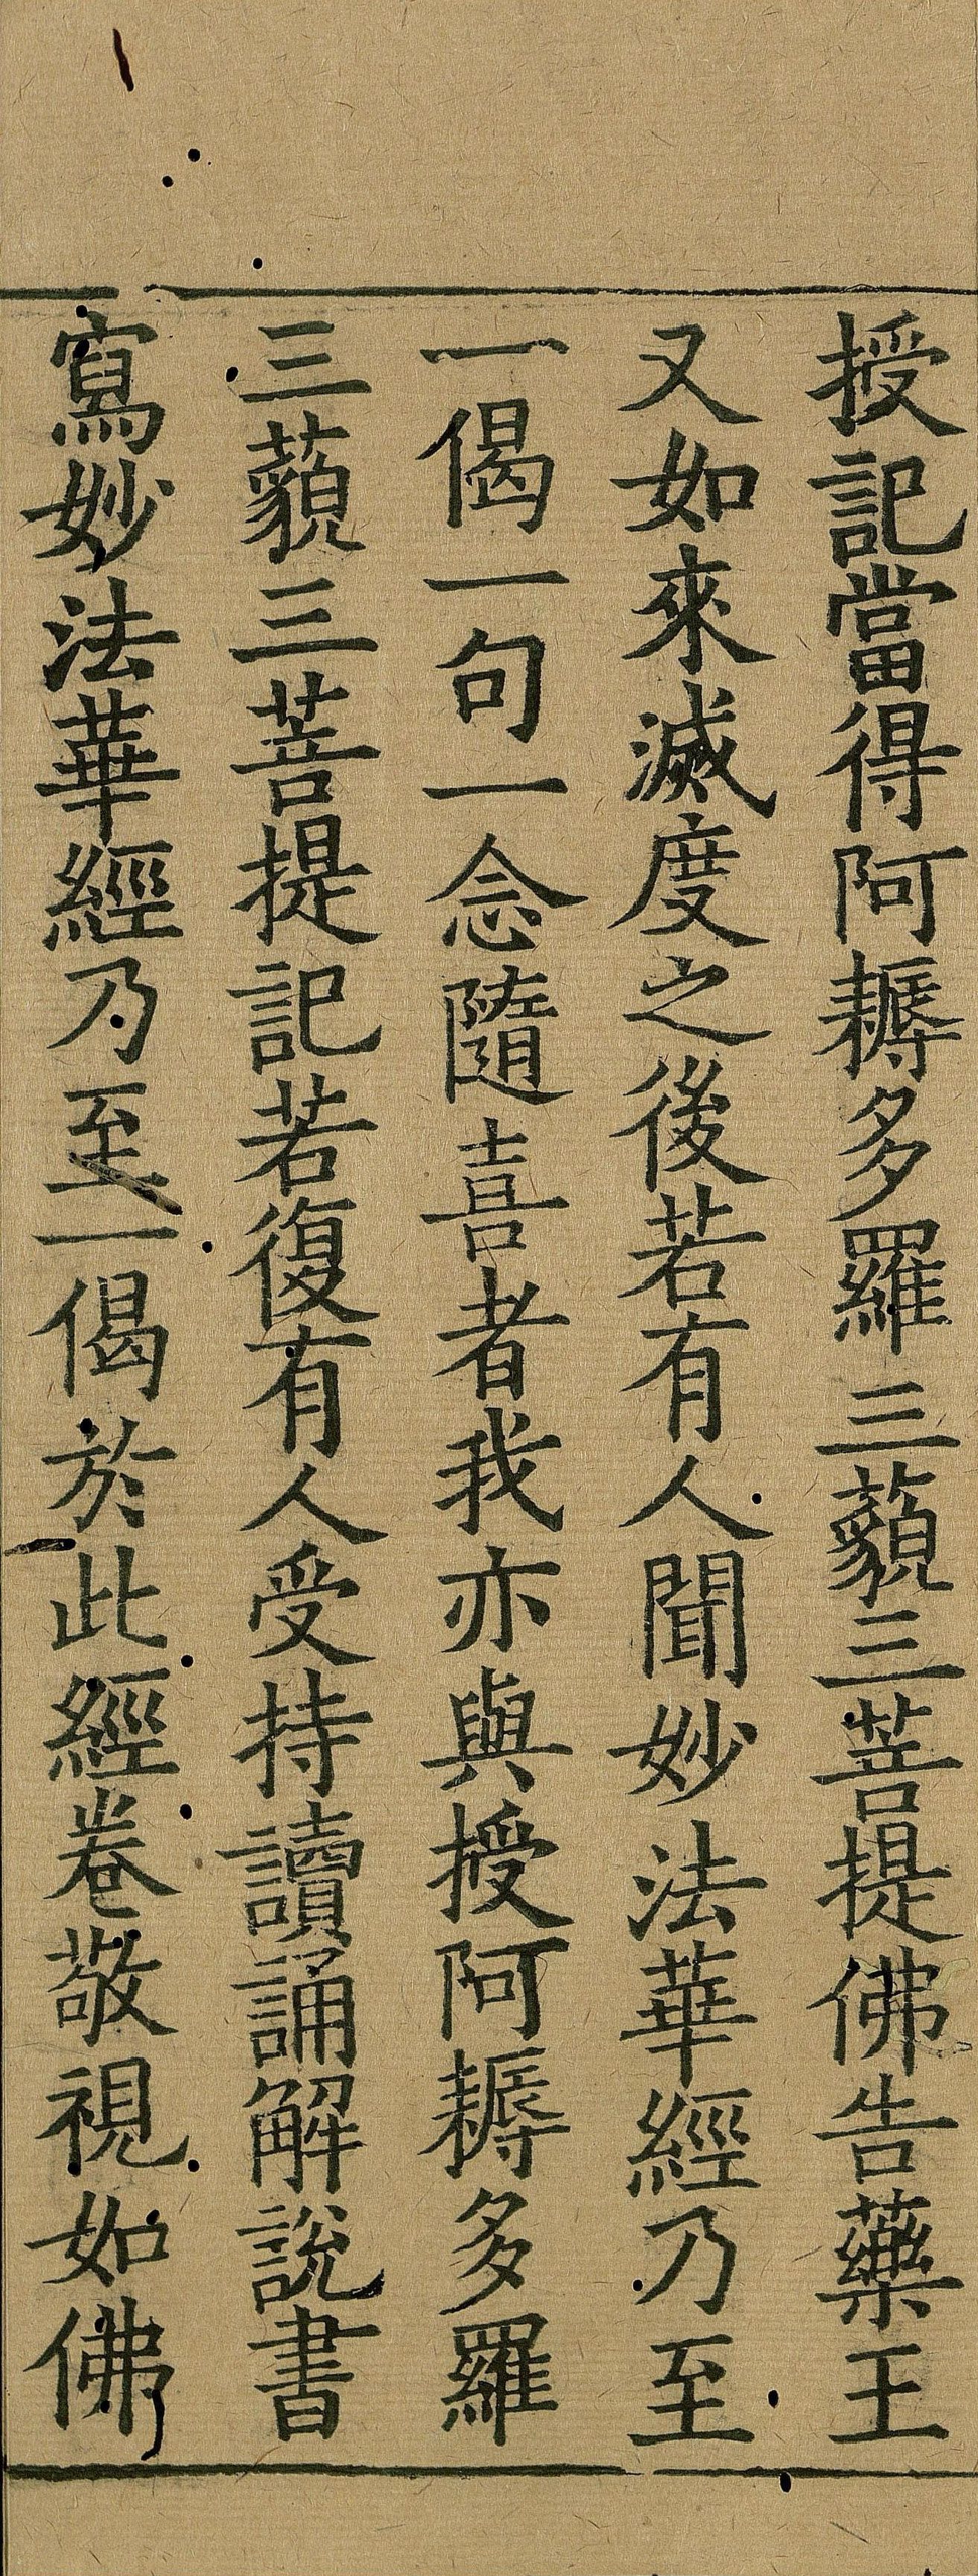 授記當得阿耨多羅三藐三菩提佛告藥王
又如來滅度之後若有人聞妙法華經乃至
一偈一句一念隨喜者我亦與授阿耨多羅
三藐三菩提記若復有人受持讀誦解說書
寫妙法華經乃至一偈於此經卷敬視如佛